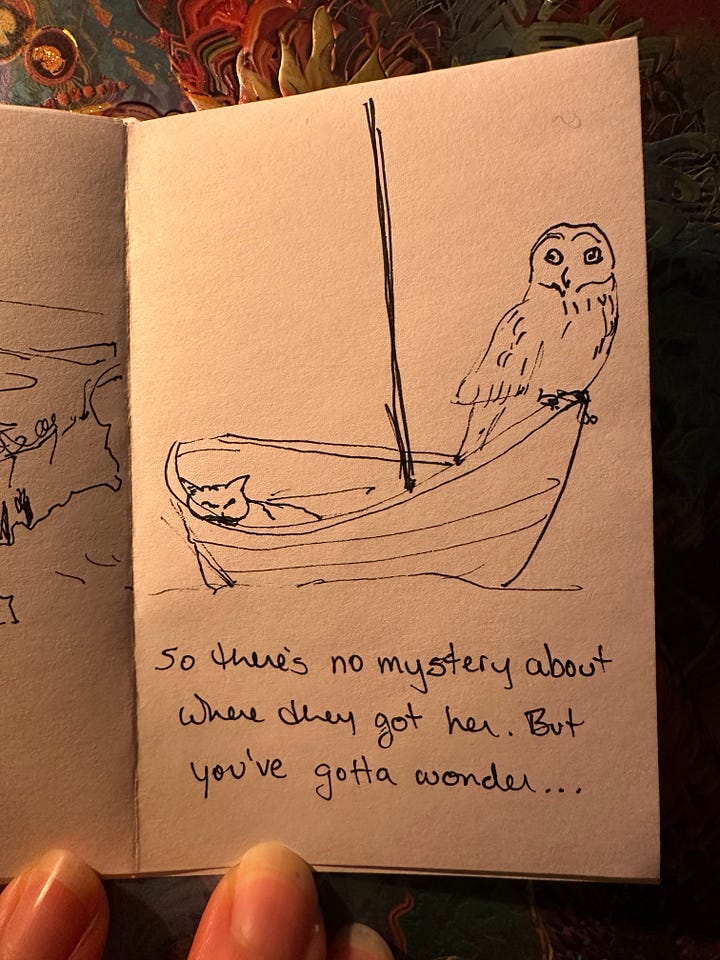 So there's no mystery about
where they got her. But
you've gotta wonder...